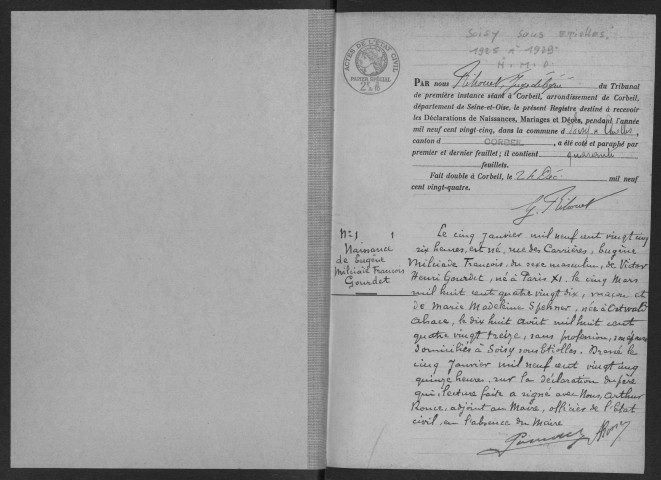 Soisy sous Etiolles
1925 à 1929
N. M. D.
ACTES DE L'ETAT CIVIL
PAPIER SPECIAL
PAR nous Ribouet, Juge délégué du Tribunal
de première instance séant à Corbeil, arrondissement de Corbeil,
département de Seine-et-Oise, le présent Registre destiné à recevoir
les Déclarations de Naissances, Mariages et Décès, pendant l'année
mil neuf cent vingt-cinq, dans la commune d
canton d CORBEIL, a été coté et paraphé par
premier et dernier feuillet; il contient quarante
feuillets.
Fait double à Corbeil, le 24 Déc mil neuf
cent vingt-quatre.
G. Ribouet
N° 1 1
Naissance
de Eugène
Milciade François
Gourdet
Le cinq Janvier mil neuf cent vingt cinq
six heures, est né, rue des Carrières, Eugène
Milciade François, du sexe masculin, de Victor
Henri Gourdet, né à Paris XI, le cinq Mars
mil huit cent quatre vingt dix, maçon et
de Marie Madeleine Spehner, née à Ostwald
Alsace, le dix huit Août mil huit cent
quatre vingt treize, sans profession, son épouse
domiciliés à Soisy sous Etiolles. Dressé le
cinq Janvier mil neuf cent vingt cinq
quinze heures, sur la déclaration du père
qui, lecture faite a signé avec Nous, Arthur
adjoint au Maire, officier de l'Etat
civil, en l'absence du Maire